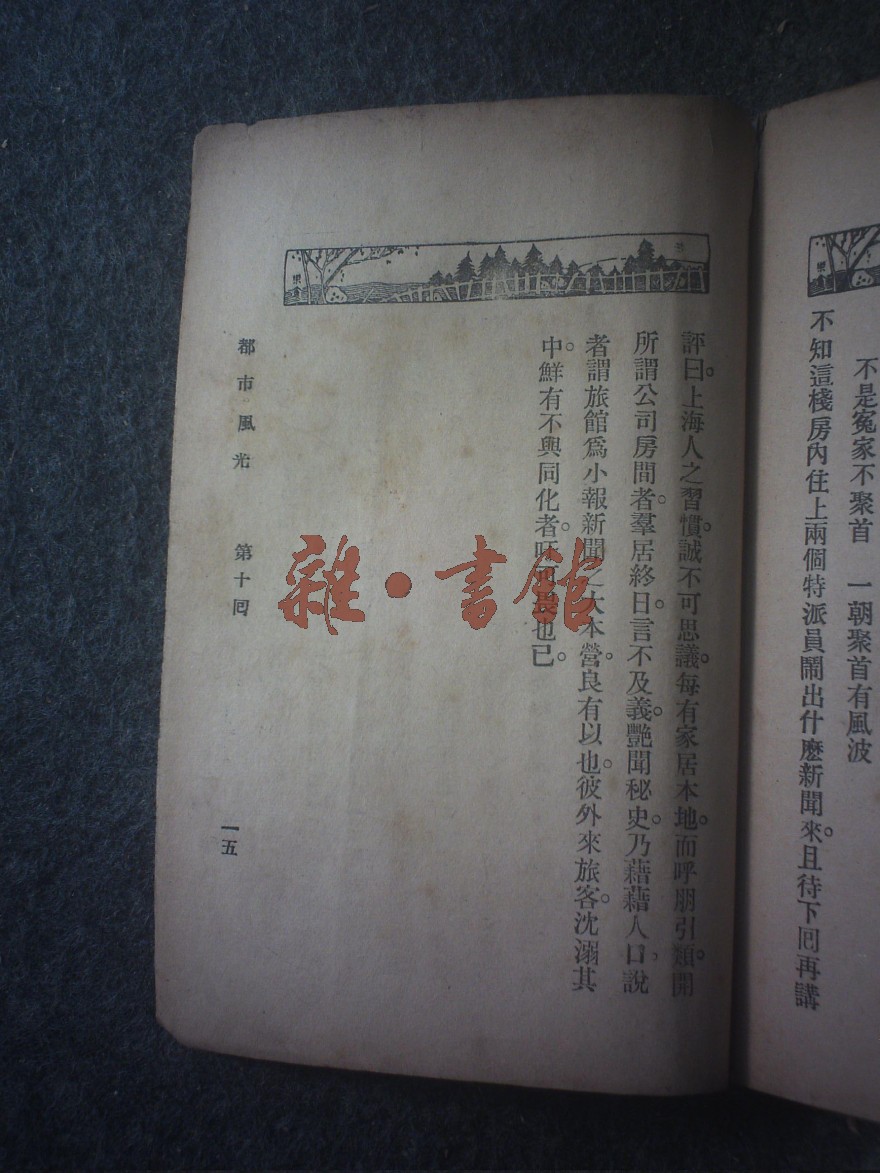 不是寃家不聚首　一朝聚首有風波
不知這棧房內住上兩個特派員鬧出什麽新聞來。且待下囘再講
評曰。上海人之習慣。誠不可思議。每有家居本地。而呼朋引類。開
所謂公司房間者。羣居終日。言不及義。艷聞秘史。乃藉藉人口、說
者謂旅館爲小報新聞之大本營。良有以也。彼外來旅客。沈溺其
中。鮮有不與同化者。也已。
都市風光　第十囘
一五
雜·書館